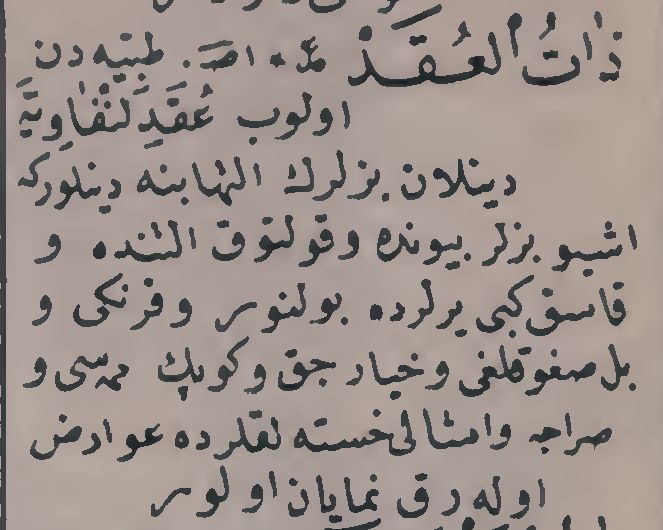 ذاتُ العُقَدْ مد. اصـ. طبيه دن
اولوب عُقَدِ لنفاويَّه
دينلان بزلرك التهابنه دينلوركه
اشبو بزلر بيونده وقولتوق التنده و
قاسق كبى يرلرده بولنور وفرنكى و
بل صغوقلغى وخيارجق وكوپك ممه سى و
صراجه وامثالى خسته لقلرده عوارض
اوله رق نمايان اولور